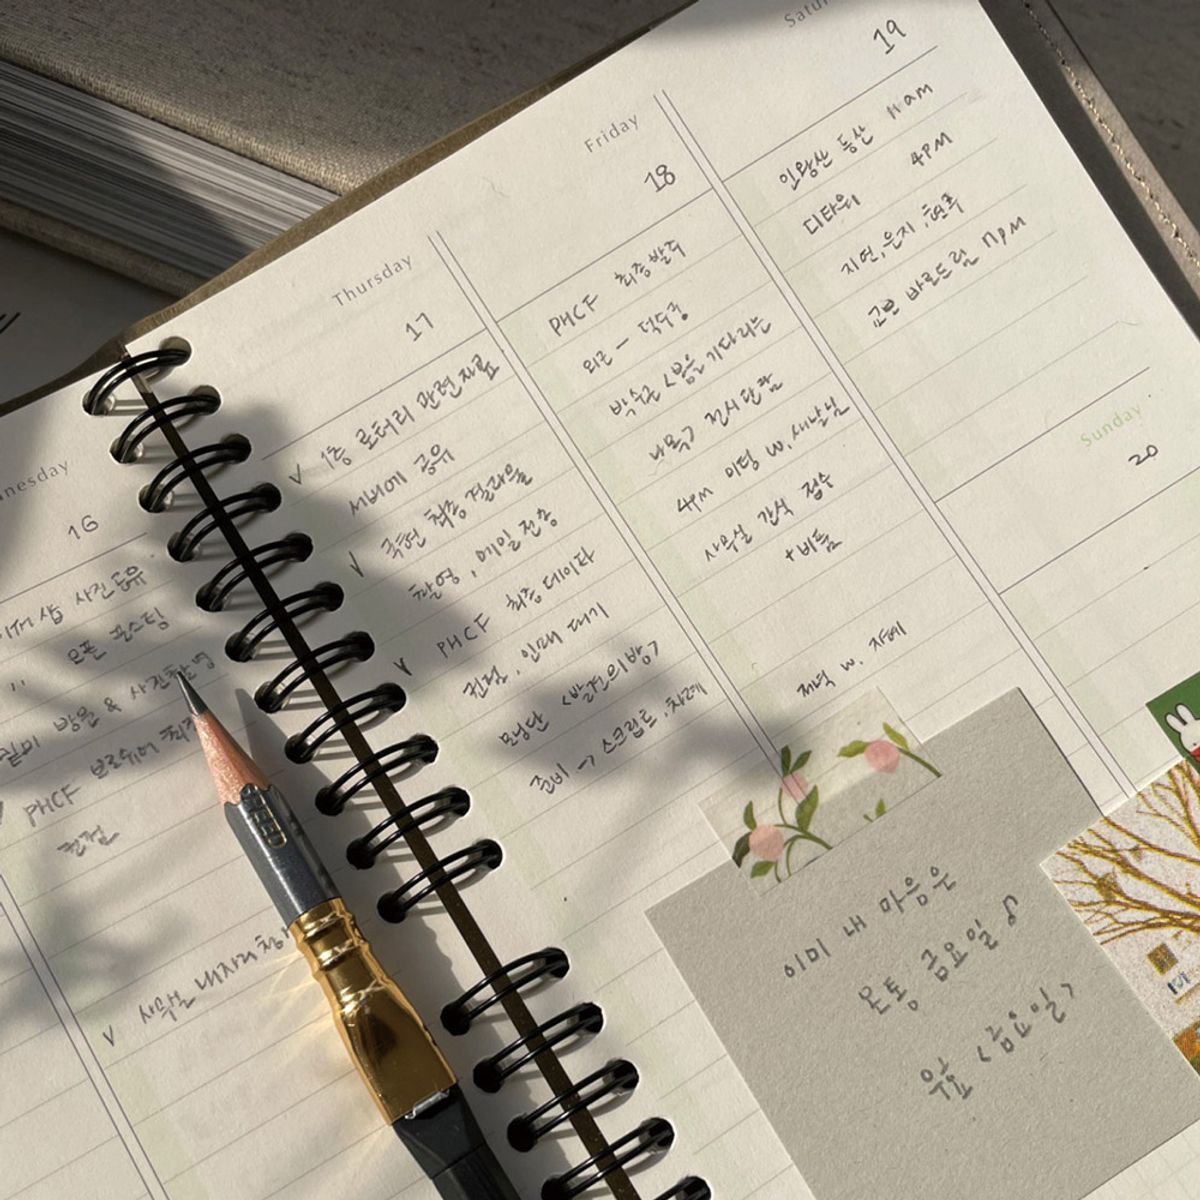 nesday
16
사진공유
" 오픈 포스팅
방문 &
PHCF 브로슈어
Thursday
17
✓ 1층 로터리 관련자료
서버에 공유
✓ 국현 최종 결과물
촬영, 메일 전송
✓ PHCF 최종 데이타
전달, 인쇄 대기
명단 <발전의밤>
준비 → 스크립트, 차례
Friday
18
PHCF 최종발주
외근 - 덕수궁
박수근 <봄을 기다리는
나목> 전시관람
4PM 미팅 w. 새날님
사무실 간식 접수
+비품
저녁 w. 자예
Satur
19
인왕산 등산 11am
디타워 4PM
지연, 은지, 현주
교보 바로드림 7PM
Sunday
20
이미 내 마음은
온통 금요일♪
우효 <금요일>